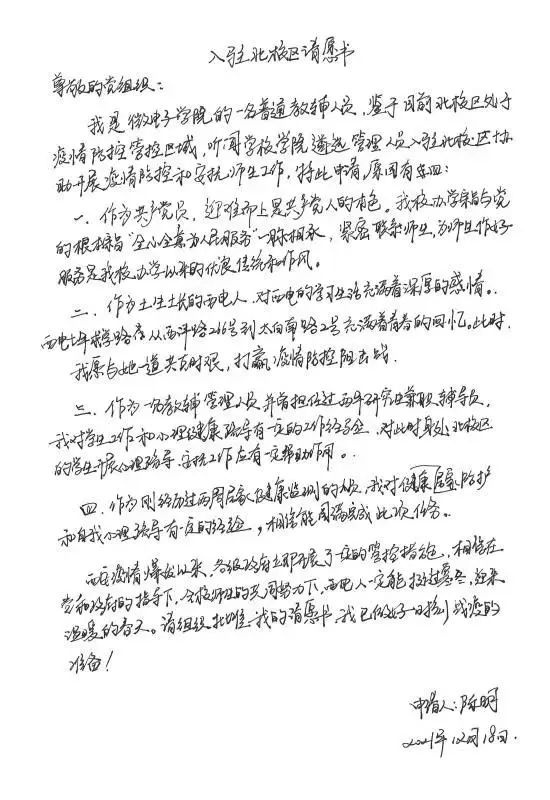 入驻北校区请愿书
尊敬的党组织：
我是微电子学院的一名普通教辅人员，鉴于目前北校区处于
疫情防控管控区域，听闻学校学院遴选管理人员入驻北校区协
助开展疫情防控和安抚师生工作，特此申请，原因有四：
一、作为共产党员，迎难而上是共产党人的本色。我校办学宗旨与党
的根本宗旨“全心全意为人民服务”一脉相承，紧密联系师生，为师生作好
服务是我校办学以来的优良传统和作风。
二、作为土生土长的西电人，对西电的学习生活充满着深厚的感情。
西电十年求学路，从西沣路266号到太白南路2号充满着青春的回忆。此时，
我愿与她一道共克时艰，打赢疫情防控阻击战。
三、作为一名教辅管理人员并曾担任过两年研究生兼职辅导员，
我对学生工作和心理健康疏导有一定的工作经验，对此时身处北校区
的学生开展心理疏导、安抚工作应有一定帮助作用。
四、作为刚经历过两周居家健康监测的人员，我对健康居家防护
和自我心理疏导有一定的经验，相信能圆满完成此次任务。
西安疫情爆发以来，各级政府立即开展了一定的管控措施，相信在
党和政府的指导下，全校师生的共同努力下，西电人一定能挺过寒冬，迎来
温暖的春天。请组织批准我的请愿书，我已做好一切抗击战疫的
准备！
申请人：陈明
2021年12月18日.